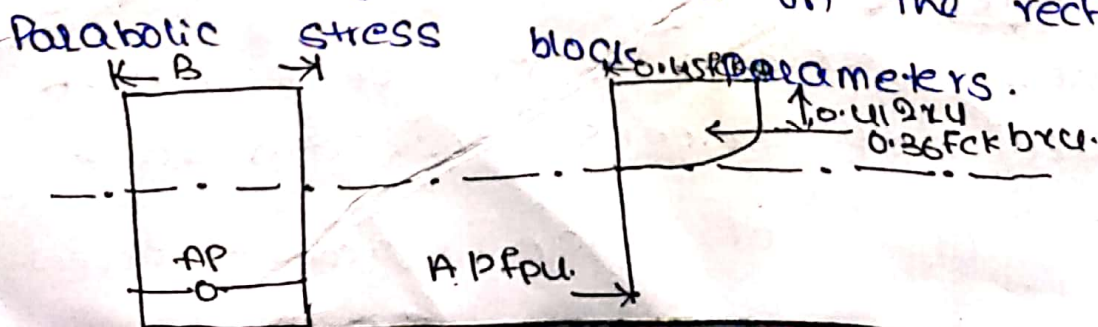 the rect
Parabolic stress block parameters.
B
0.412xu
0.36FCK bxu.
AP
A Pfpu.